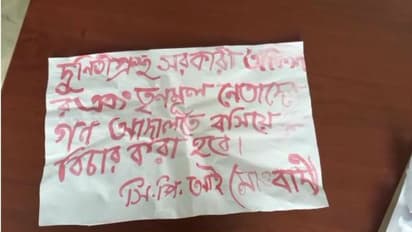 দুর্নিতীগ্রস্থ সরকারী অফিসা
র এবং তৃনমূল নেতাদের
গন আদালতে বসিয়ে
বিচার করা হবে।
সি.পি.আই (মাওবাদী